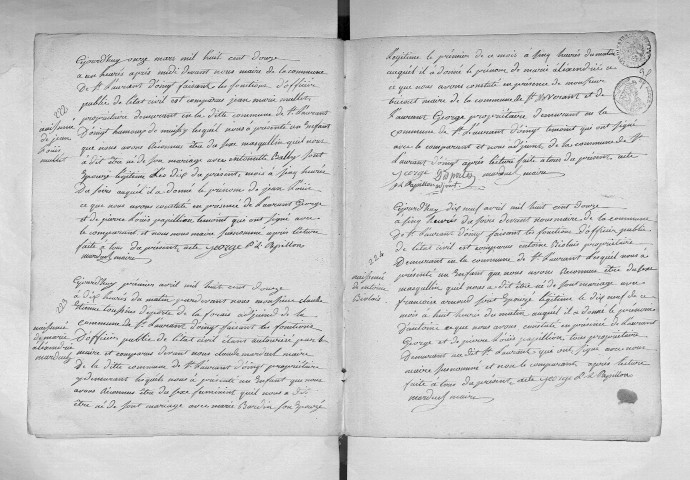 Ejourd'huy onze mars mil huit cent douze
a un heures apres midi devant nous maire de la commune
de St laurant d'oingt faisant les fontions d'officier
public de l'etat civil est comparus jean marie mullet
propriétaire demeurant en la dite commune de St laurant
d'oingt lequel nous a présenté un Enfant
que nous avons Reconnu être du sexe masqullin quil nous
a dit être né de son mariage avec antoinette
Epouze légitime Le dix du présent mois a sinq heures
du soire auquel il a donné le prénom de jean Louis
ce que nous avons constaté en présence de laurant George
et de pierre Louis papillion temoint qui ont signé avec
le comparant et nous maire susnommé après lecture
faite a tous du présent acte George P. L. Papillon
marduel maire
222
naissance
de jean
Louis
mullet
Ejourd'huy premier avril mil huit cent douze
a dix heures du matin pardevant nous monsieur claude
Etienne adjoint de la
commune de St laurant d'oingt faisant les fontions
d'officier public de l'etat civil
maire est comparus devant nous claude marduel maire
de la ditte commune de St laurant d'oingt propriétaire
y demeurant lequel nous a présenté un Enfant que nous
avons Reconnu être du sexe feminint quil nous a dit
être né de sont mariage avec marie Bardin son Epouze
223
naissance
de marie
alexandrine
marduel
légitime le premier de ce mois a sinq heures du matin
auquel il a donné le prénom de marie alexandrine
ce que nous avons constaté en présence de monsieur
maire de la commune de St et de
laurant George propriétaire demeurant en la
commune de St laurant d'oingt temoint qui ont signé
avec le comparant et nous adjoint de la commune de St
laurant d'oingt après lecture faite a tous du présent acte
George marduel maire
adjoint
Ejourd'huy dix neuf avril mil huit cent douze
a sinq heures du soire devant nous maire de la commune
de St laurant d'oingt faisant les fontions d'officier public
de l'etat civil est comparus antoine propriétaire
demeurant en la commune de St laurant lequel nous a
présenté un Enfant que nous avons Reconnu être du sexe
masqullin quil nous a dit être né de sont mariage avec
françoise sont Epouze légitime le dix neuf de ce
mois a huit heures du matin auquel il a donné le prénom
d'antoine ce que nous avons constaté en présence de laurant
George et de pierre Louis papillion tous propriétaire
demeurant au dit St laurant que ont signé avec nous
maire susnommé et non le comparant après lecture
faite a tous du présent acte George P. L. Papillon
marduel maire
224
naissance
de antoine